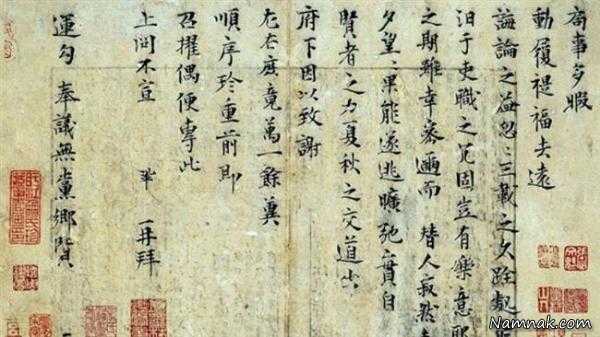 局事多暇
動履禔福去遠
誨論之益忽忽三載之久跧處
汩于吏職之冗固豈有樂意耶
之期雖幸密邇而替人寂然
夕望望果能遂逃曠弛實自
賢者之力夏秋之交道出
府下因以致謝
左右庶竟萬一餘冀
順序珍重前即
召擢偶便專此
上問不宣 鞏再拜
運勾奉議無黨鄉賢
Namnak.com